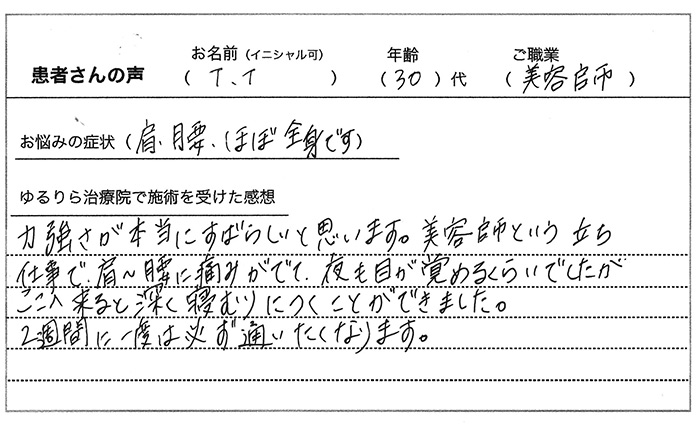 患者さんの声 お名前(イニシャル可) ( T、T ) 年齢 ( 30 ) 代 ご職業 ( 美容師 )
お悩みの症状 ( 肩、腰、ほぼ全身です )
ゆるりら治療院で施術を受けた感想
力強さが本当にすばらしいと思います。美容師という立ち
仕事で、肩〜腰に痛みがでて、夜も目が覚めるくらいでしたが
ここへ来ると深く寝むりにつくことができました。
2週間に一度は必ず通いたくなります。